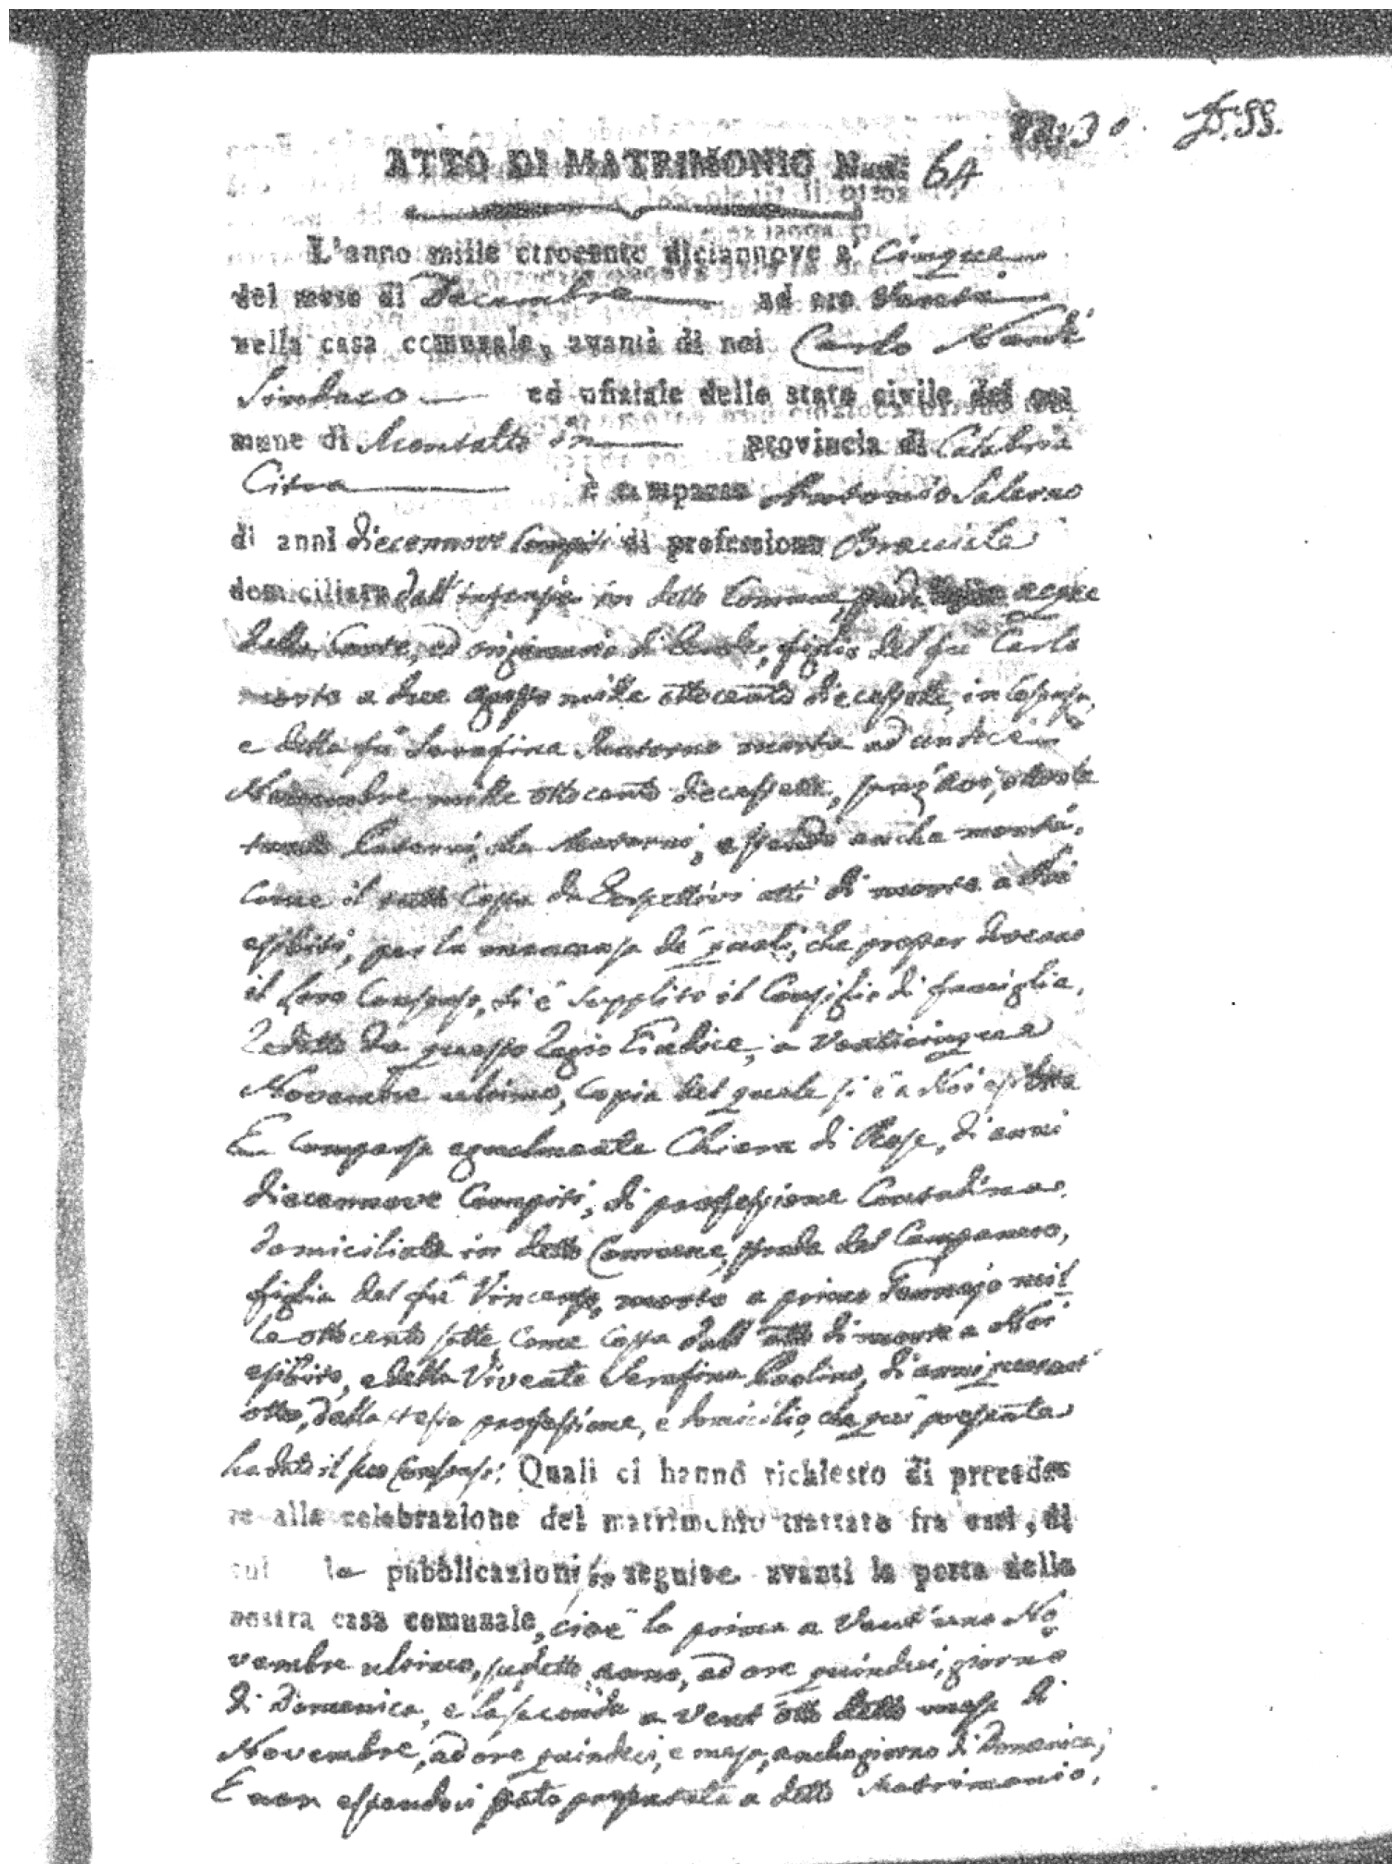 ATTO DI MATRIMONIO Num. 64
L'anno mille ottocento diciannove a' Cinque
del mese di Decembre ad ore
nella casa comunale, avanti di noi Carlo Nardi
Sindaco ed ufiziale dello stato civile del co-
mune di Montalto in provincia di Calabria
Citra è comparso Antonio Salerno
di anni diecennove Compiti di professione Bracciale
domiciliato dall' infanzia in detto Comune,
della ed originario di figlio del fu Carlo
morto a due mille ottocento diecessette, in Cosenza,
e della fu Serafina morta ad undici
Novembre mille ottocento diecessette,
Paterni, che Materni, essendo anche morti,
Come il tutto Costa da Respettivi atti di morte a Noi
esibiti, per la mancanza de' quali, che prestar doveano
il loro Consenso, si è supplito il Consiglio di famiglia,
Redatto da questo Regio Giudice, a Venticinque
Novembre ultimo, Copia del quale si è a Noi esibita
E Comparsa egualmente Chiara di Rose, di anni
diecennove Compiti, di professione Contadina
domiciliata in detto Comune, strada del Campanaro,
figlia del fu Vincenzo, morto a primo Gennajo mil
le ottocento sette, Come Costa dall' atto di morte a Noi
esibito, e della Vivente Serafina Paolino, di anni quarant'
otto, della stessa professione, e domicilio, che qui presente
ha dato il suo Consenso: Quali ci hanno richiesto di procede-
re alla celebrazione del matrimonio trattato fra essi, di
cui le pubblicazioni seguite avanti la porta della
nostra casa comunale, cioè la prima a Vent'uno No
vembre ultimo, sudetto anno, ad ore quindeci, giorno
di Domenica, e la seconda a vent'otto detto mese di
Novembre, ad ore quindeci, e mezza, anche giorno di Domenica,
E non essendovi a detto Matrimonio,